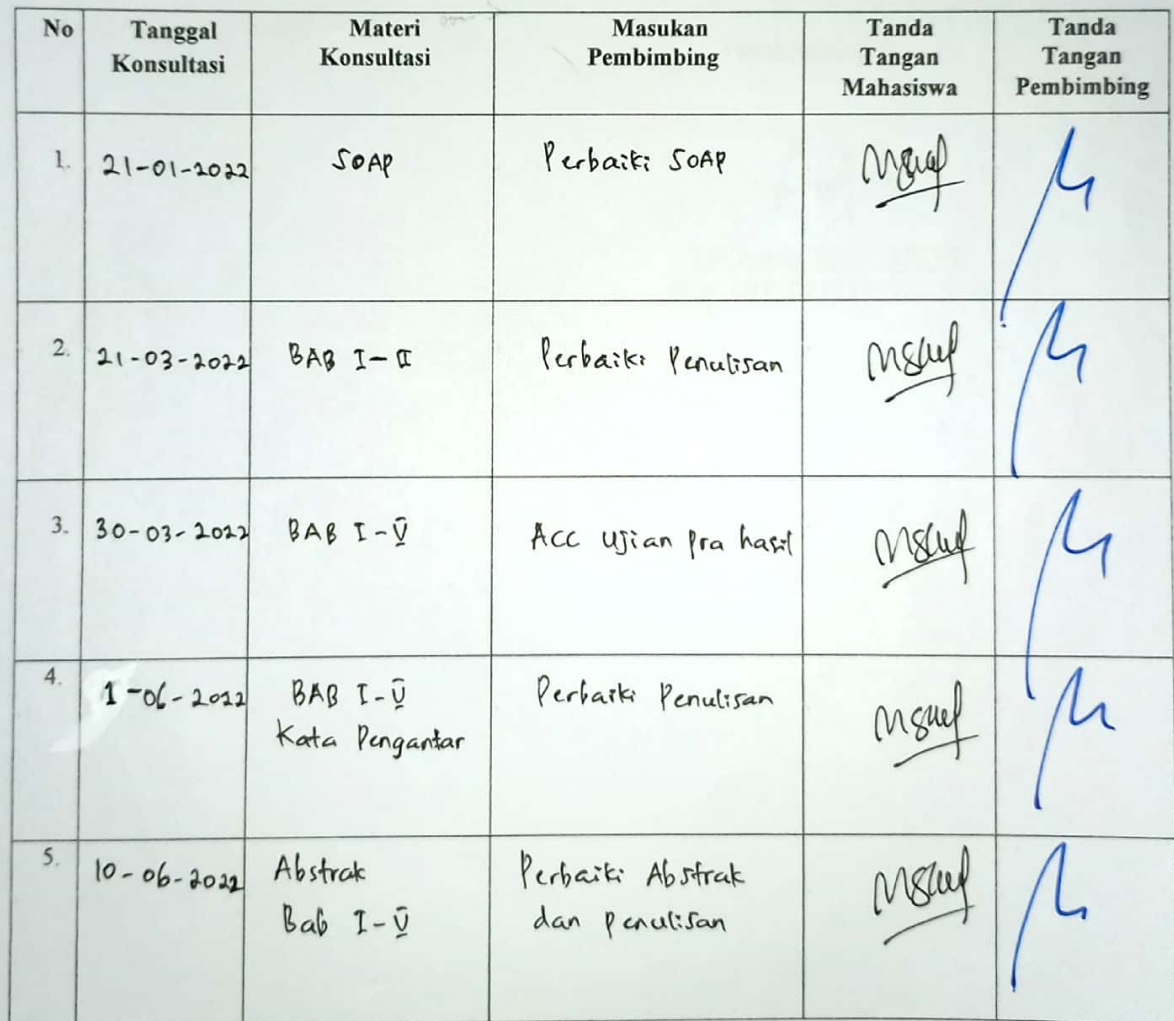 No Tanggal Konsultasi Materi Konsultasi Masukan Pembimbing Tanda Tangan Mahasiswa Tanda Tangan Pembimbing
1. 21-01-2022 SOAP Perbaiki SOAP
2. 21-03-2022 BAB I-II Perbaiki Penulisan
3. 30-03-2022 BAB I-V Acc ujian pra hasil
4. 1-06-2022 BAB I-V Perbaiki Penulisan
Kata Pengantar
5. 10-06-2022 Abstrak Perbaiki Abstrak
Bab I-V dan penulisan